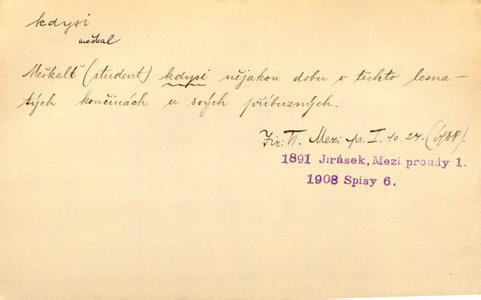 kdysi
meškal
Meškalť (student) kdysi nějakou dobu v těchto lesna-
tých končinách u svých příbuzných.
Jir. Mezi pr. I. 10. 24.
1891 Jirásek, Mezi proudy 1.
1908 Spisy 6.